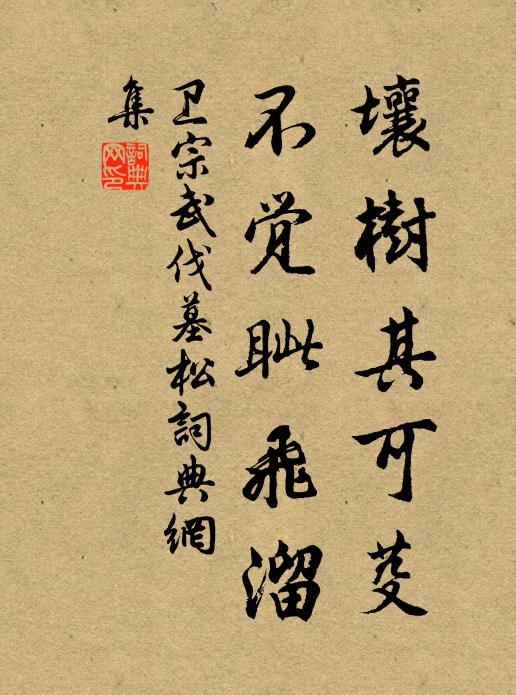 壤樹其可芟
不觉眦飛溜
卫宗武伐墓松詞典網
集
詞典网印